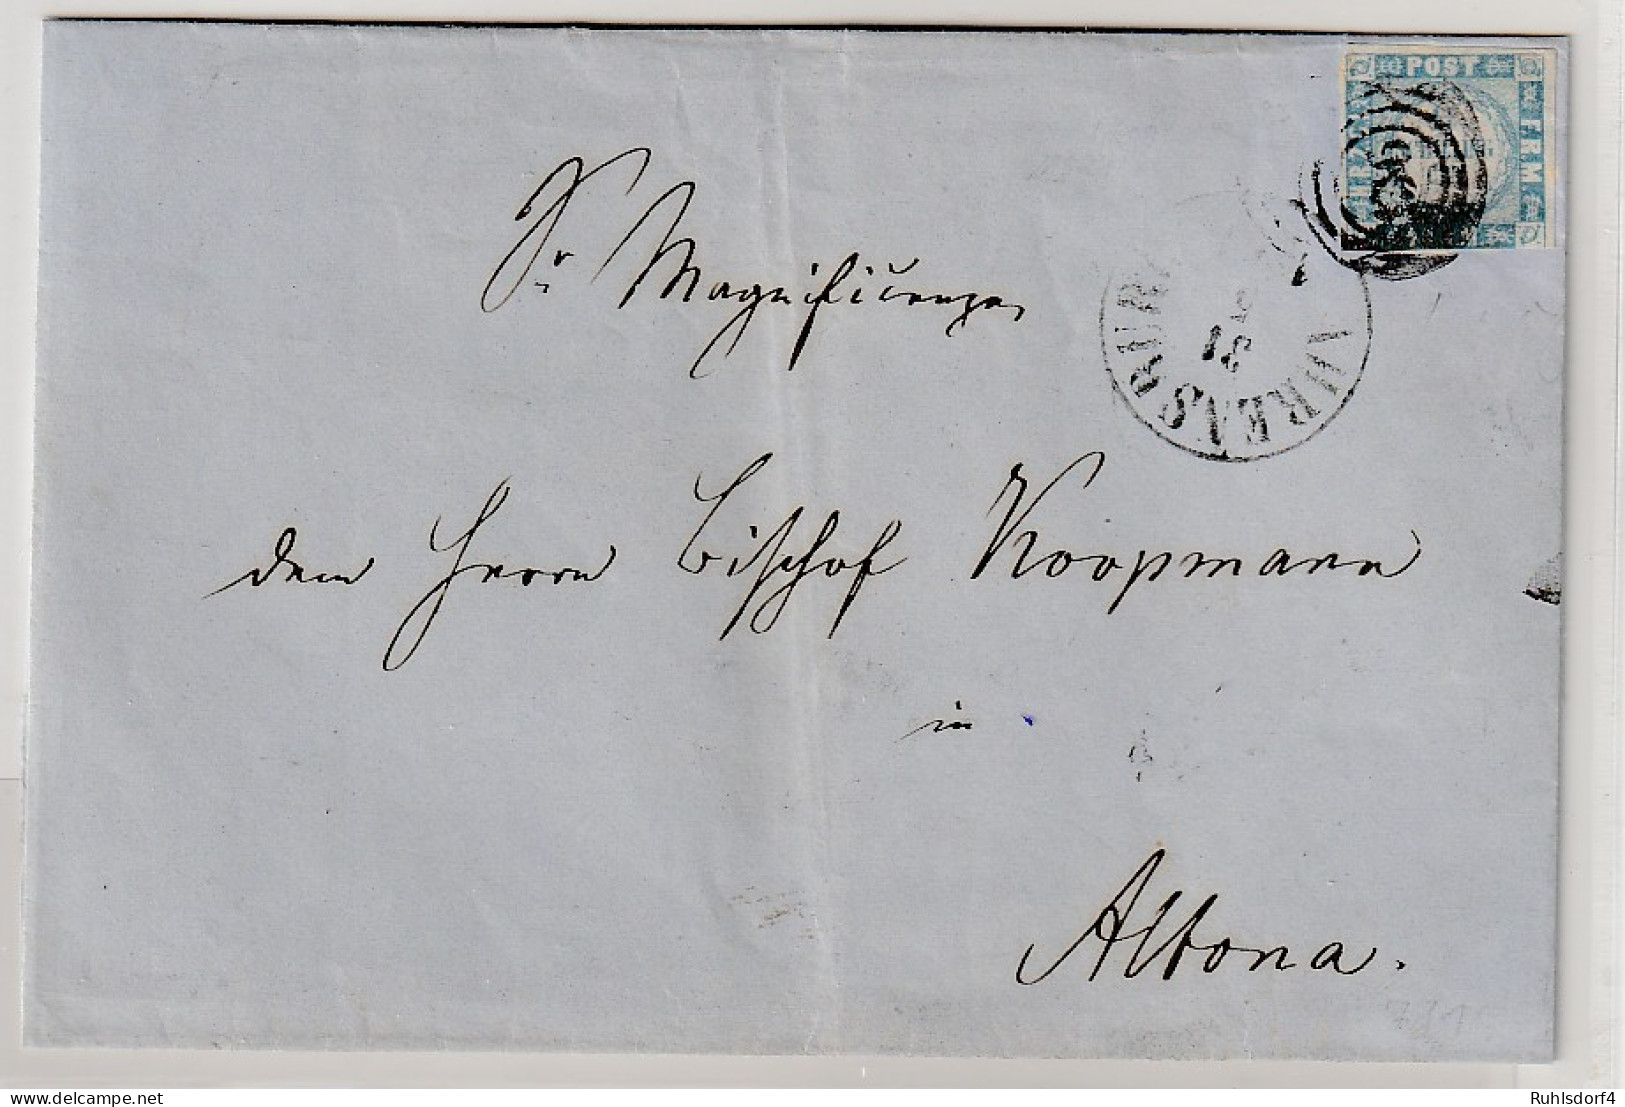 POST
F.R.M.
AHRENSBURG
31 5
Sr Magnificenze
dem Herrn Bischof Koopmann
in
Altona.
delcampe.net
Ruhlsdorf4